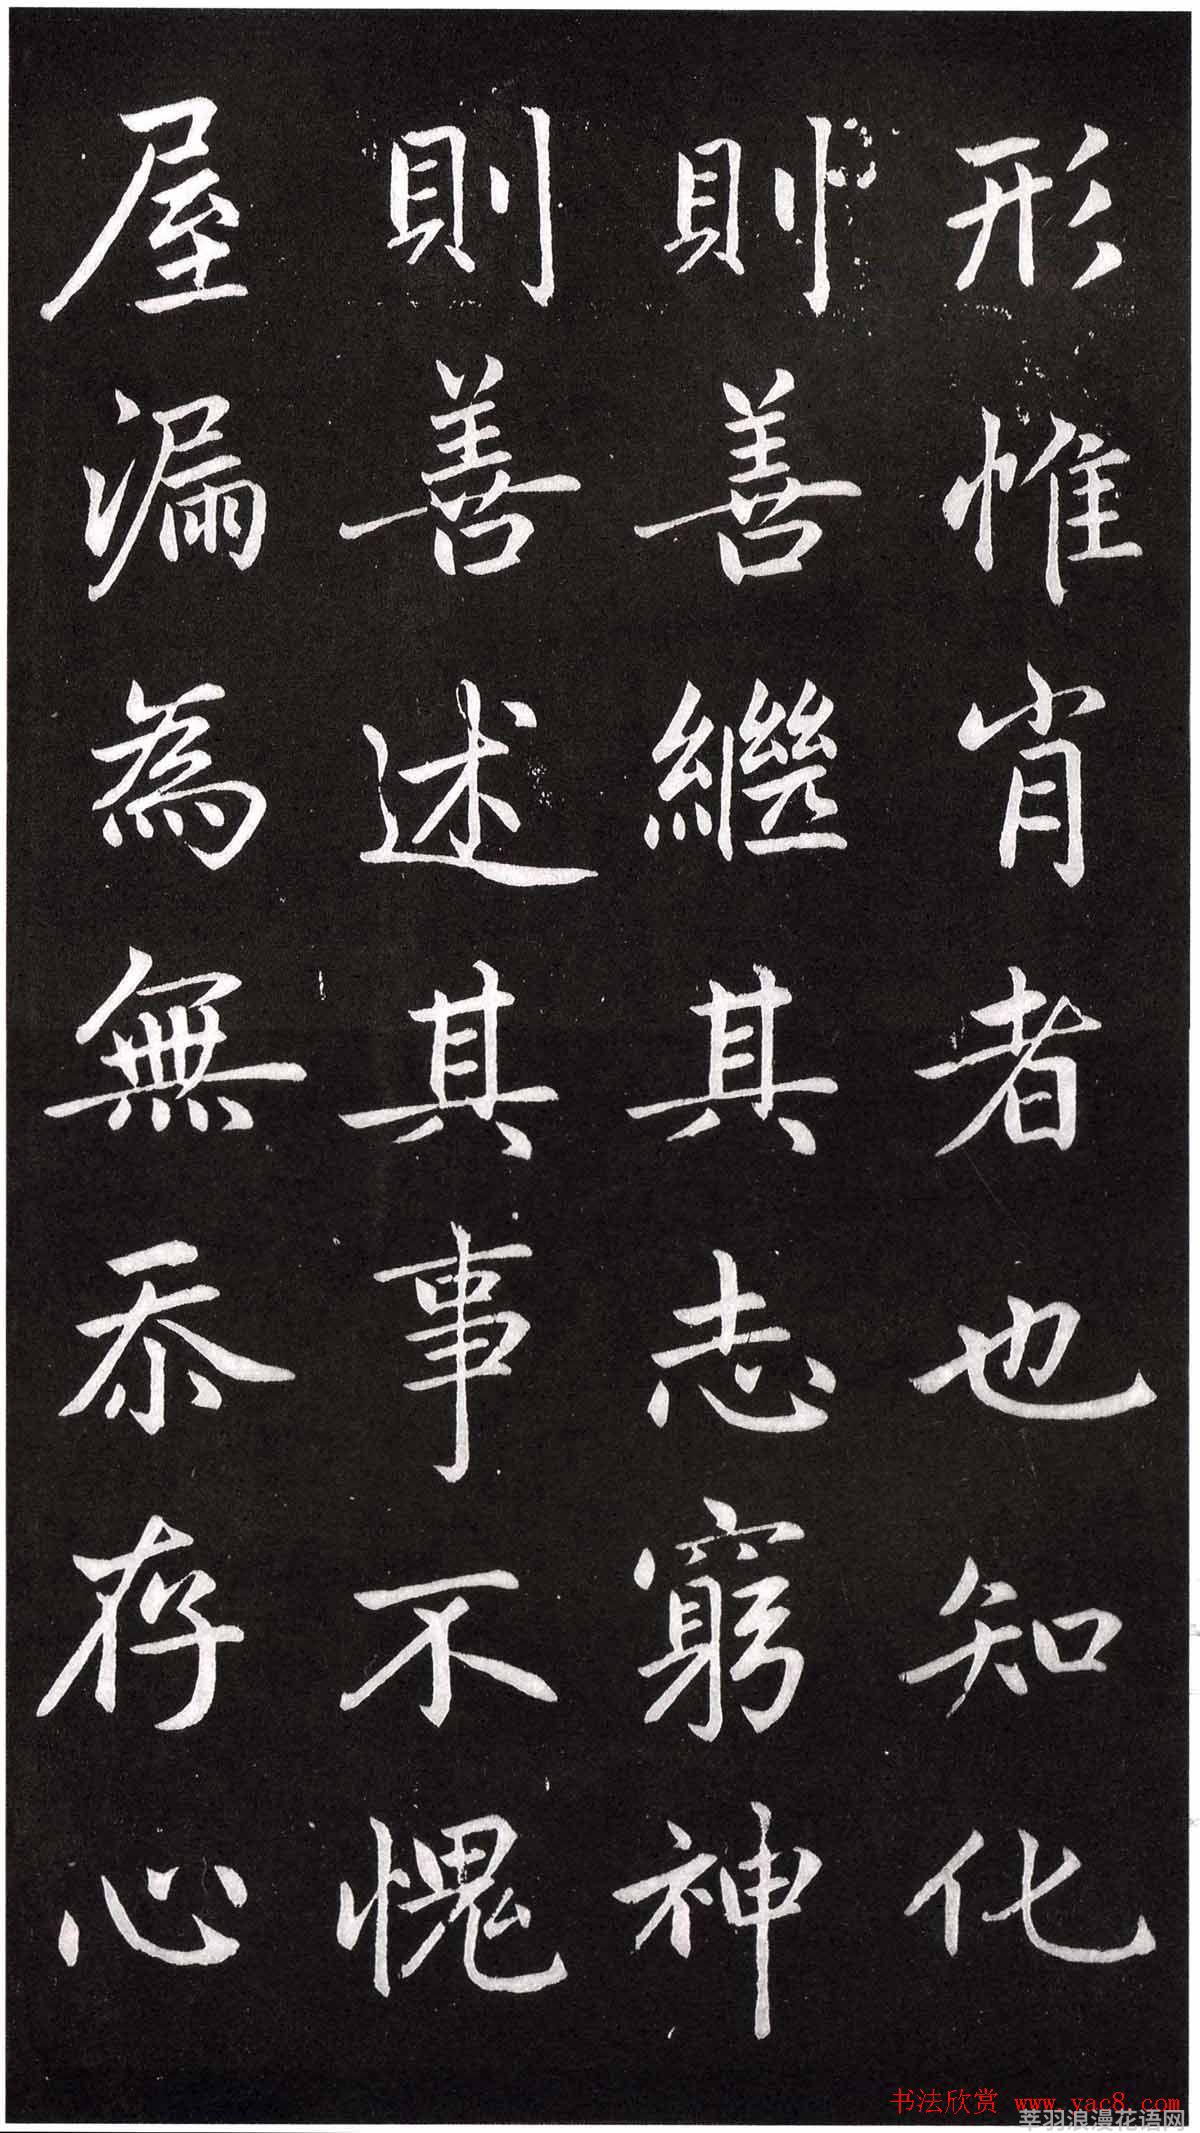 形惟肖者也知化
則善繼其志窮神
則善述其事不愧
屋漏為無忝存心
书法欣赏 www.yac8.com
莘羽浪漫花语网